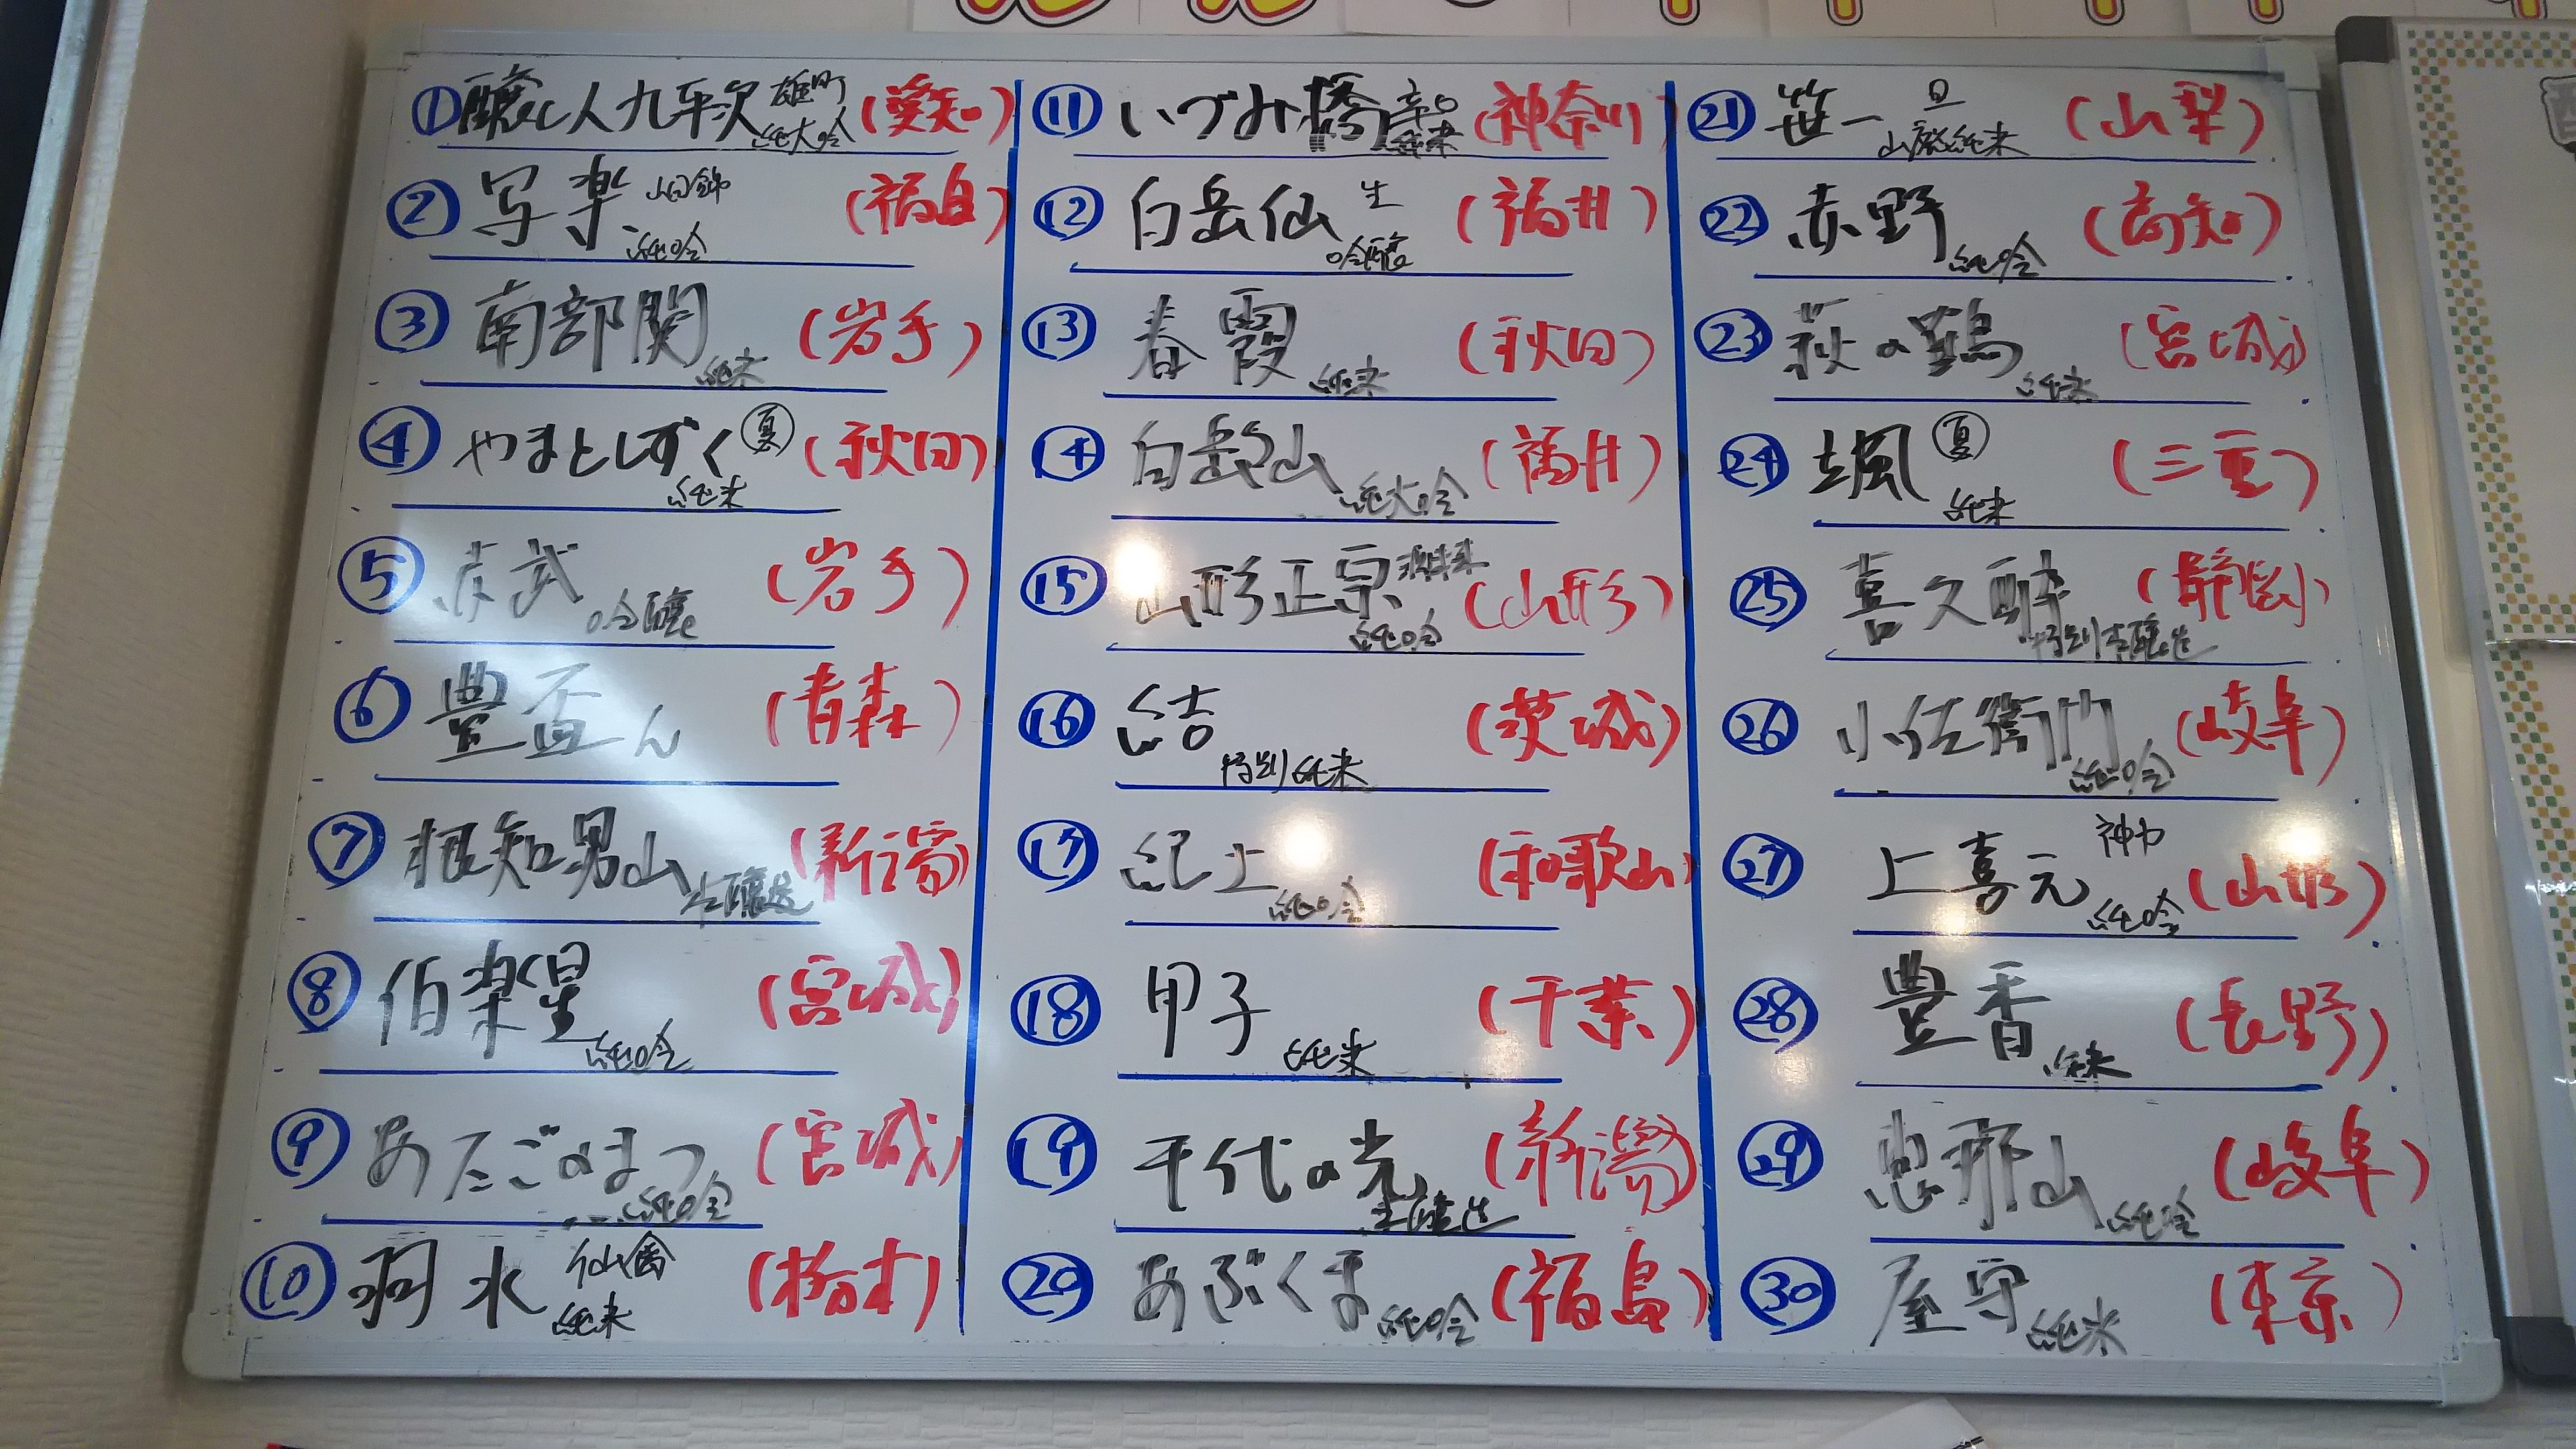 ① 醸し人九平次 雄町 純大吟 (愛知)
② 写楽 山田錦 純吟 (福島)
③ 南部関 純米 (岩手)
④ やまとしずく 夏 純米 (秋田)
⑤ 赤武 吟醸 (岩手)
⑥ 豊盃 ん (青森)
⑦ 根知男山 本醸造 (新潟)
⑧ 伯楽星 純吟 (宮城)
⑨ あたごのまつ 純吟 (宮城)
⑩ 羽水 仙禽 純米 (栃木)
⑪ いづみ橋 辛口 純米 (神奈川)
⑫ 白岳仙 生 吟醸 (福井)
⑬ 春霞 純米 (秋田)
⑭ 白岳仙 純大吟 (福井)
⑮ 山形正宗 純吟 (山形)
⑯ 結 特別純米 (茨城)
⑰ 紀土 純吟 (和歌山)
⑱ 甲子 純米 (千葉)
⑲ 千代の光 本醸造 (新潟)
⑳ あぶくま 純吟 (福島)
㉑ 笹一 旦 山廃純米 (山梨)
㉒ 赤野 純吟 (高知)
㉓ 萩の鶴 純米 (宮城)
㉔ 颯 夏 純米 (三重)
㉕ 喜久酔 特別本醸造 (静岡)
㉖ 小左衛門 純吟 (岐阜)
㉗ 上喜元 神力 純吟 (山形)
㉘ 豊香 純米 (長野)
㉙ 恵那山 純吟 (岐阜)
㉚ 屋守 純米 (東京)